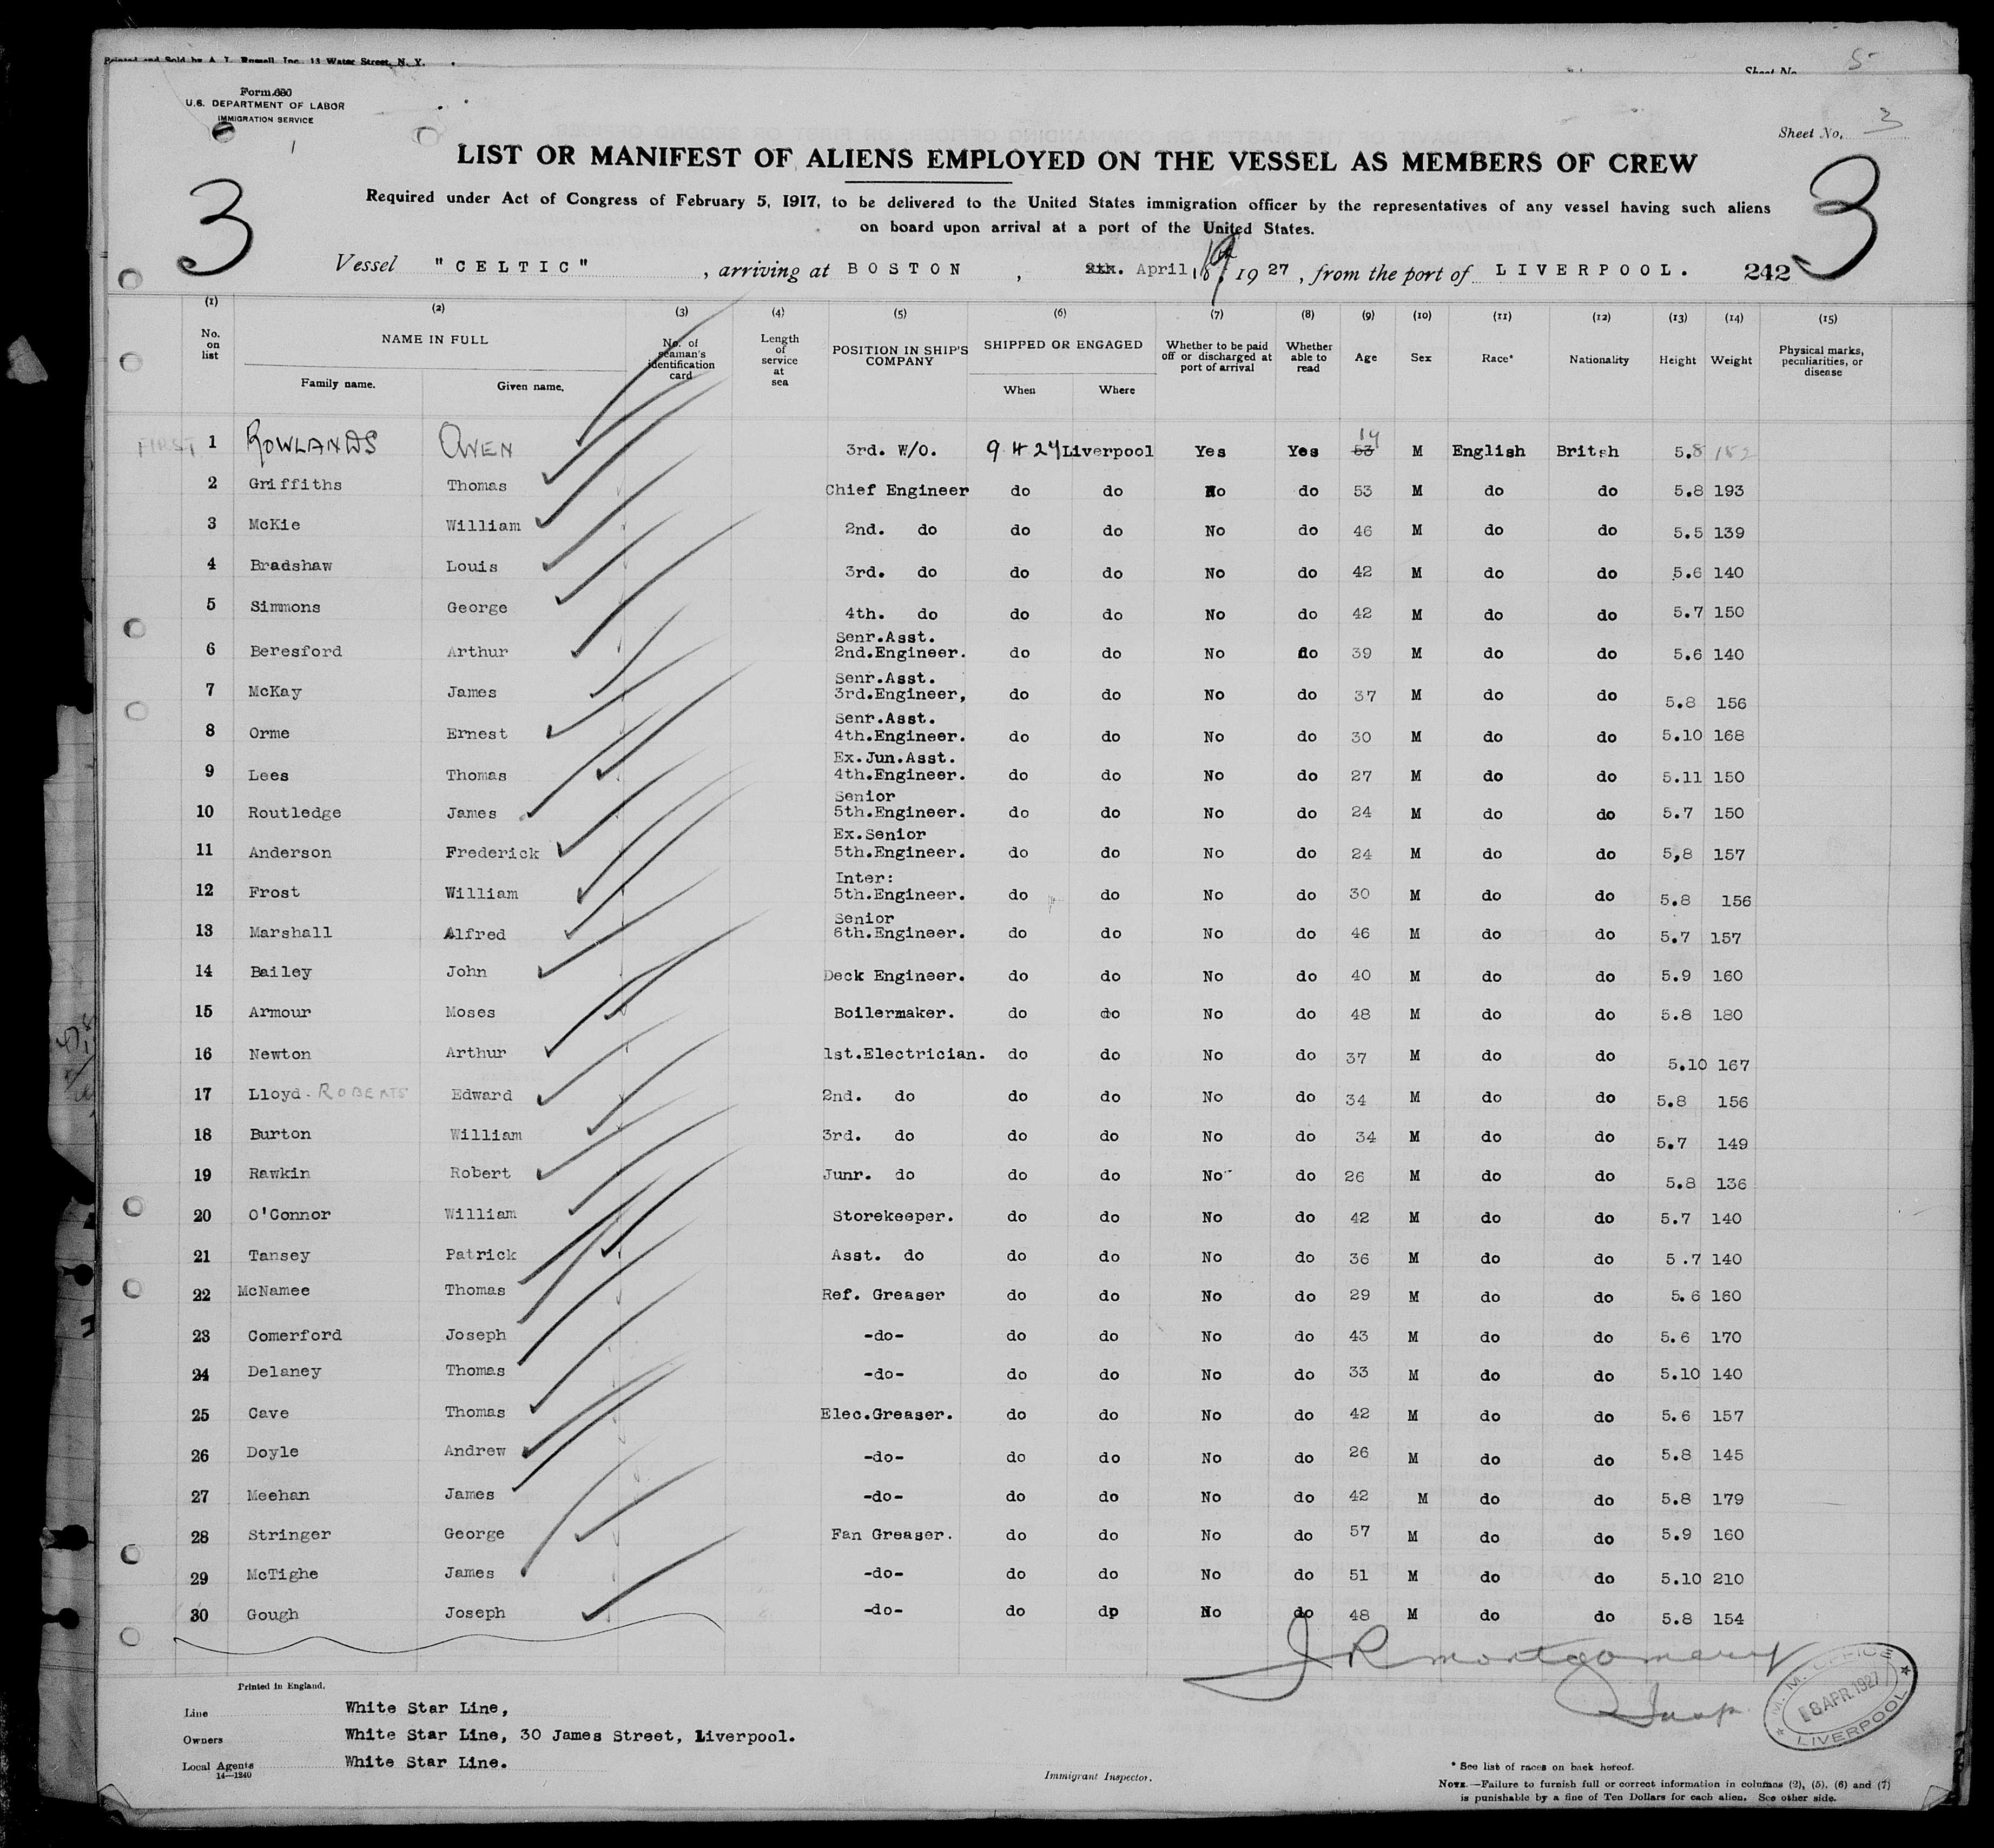 Printed and Sold by A. L. Russell, Inc. 13 Water Street, N. Y.
Sheet No. 5
Form 680
U.S. DEPARTMENT OF LABOR
IMMIGRATION SERVICE
Sheet No. 3
LIST OR MANIFEST OF ALIENS EMPLOYED ON THE VESSEL AS MEMBERS OF CREW
3 3
Required under Act of Congress of February 5, 1917, to be delivered to the United States immigration officer by the representatives of any vessel having such aliens
on board upon arrival at a port of the United States.
Vessel "CELTIC", arriving at BOSTON, April 1927, from the port of LIVERPOOL. 242
(1) (2) (3) (4) (5) (6) (7) (8) (9) (10) (11) (12) (13) (14) (15)
No. on list NAME IN FULL No. of seaman's identification card Length of service at sea POSITION IN SHIP'S COMPANY SHIPPED OR ENGAGED Whether to be paid off or discharged at port of arrival Whether able to read Age Sex Race* Nationality Height Weight Physical marks, peculiarities, or disease
Family name. Given name. When Where
FIRST 1 ROWLANDS OWEN 3rd. W/O. 9 4 27 Liverpool Yes Yes 53 M English British 5.8 182
2 Griffiths Thomas Chief Engineer do do No do 53 M do do 5.8 193
3 McKie William 2nd. do do do No do 46 M do do 5.5 139
4 Bradshaw Louis 3rd. do do do No do 42 M do do 5.6 140
5 Simmons George 4th. do do do No do 42 M do do 5.7 150
6 Beresford Arthur Senr.Asst. 2nd.Engineer. do do No do 39 M do do 5.6 140
7 McKay James Senr.Asst. 3rd.Engineer, do do No do 37 M do do 5.8 156
8 Orme Ernest Senr.Asst. 4th.Engineer. do do No do 30 M do do 5.10 168
9 Lees Thomas Ex.Jun.Asst. 4th.Engineer. do do No do 27 M do do 5.11 150
10 Routledge James Senior 5th.Engineer. do do No do 24 M do do 5.7 150
11 Anderson Frederick Ex.Senior 5th.Engineer. do do No do 24 M do do 5,8 157
12 Frost William Inter: 5th.Engineer. do do No do 30 M do do 5.8 156
13 Marshall Alfred Senior 6th.Engineer. do do No do 46 M do do 5.7 157
14 Bailey John Deck Engineer. do do No do 40 M do do 5.9 160
15 Armour Moses Boilermaker. do do No do 48 M do do 5.8 180
16 Newton Arthur 1st.Electrician. do do No do 37 M do do 5.10 167
17 Lloyd - ROBERTS Edward 2nd. do do do No do 34 M do do 5.8 156
18 Burton William 3rd. do do do No do 34 M do do 5.7 149
19 Rawkin Robert Junr. do do do No do 26 M do do 5.8 136
20 O'Connor William Storekeeper. do do No do 42 M do do 5.7 140
21 Tansey Patrick Asst. do do do No do 36 M do do 5.7 140
22 McNamee Thomas Ref. Greaser do do No do 29 M do do 5.6 160
23 Comerford Joseph -do- do do No do 43 M do do 5.6 170
24 Delaney Thomas -do- do do No do 33 M do do 5.10 140
25 Cave Thomas Elec.Greaser. do do No do 42 M do do 5.6 157
26 Doyle Andrew -do- do do No do 26 M do do 5.8 145
27 Meehan James -do- do do No do 42 M do do 5.8 179
28 Stringer George Fan Greaser. do do No do 57 M do do 5.9 160
29 McTighe James -do- do do No do 51 M do do 5.10 210
30 Gough Joseph -do- do dp No do 48 M do do 5.8 154
J R Montgomery
Insp.
M. M. OFFICE
8 APR.1927
LIVERPOOL
Printed in England.
Line White Star Line,
Owners White Star Line, 30 James Street, Liverpool.
Local Agents White Star Line.
14—1240
Immigrant Inspector.
* See list of races on back hereof.
NOTE.—Failure to furnish full or correct information in columns (2), (5), (6) and (7)
is punishable by a fine of Ten Dollars for each alien. See other side.